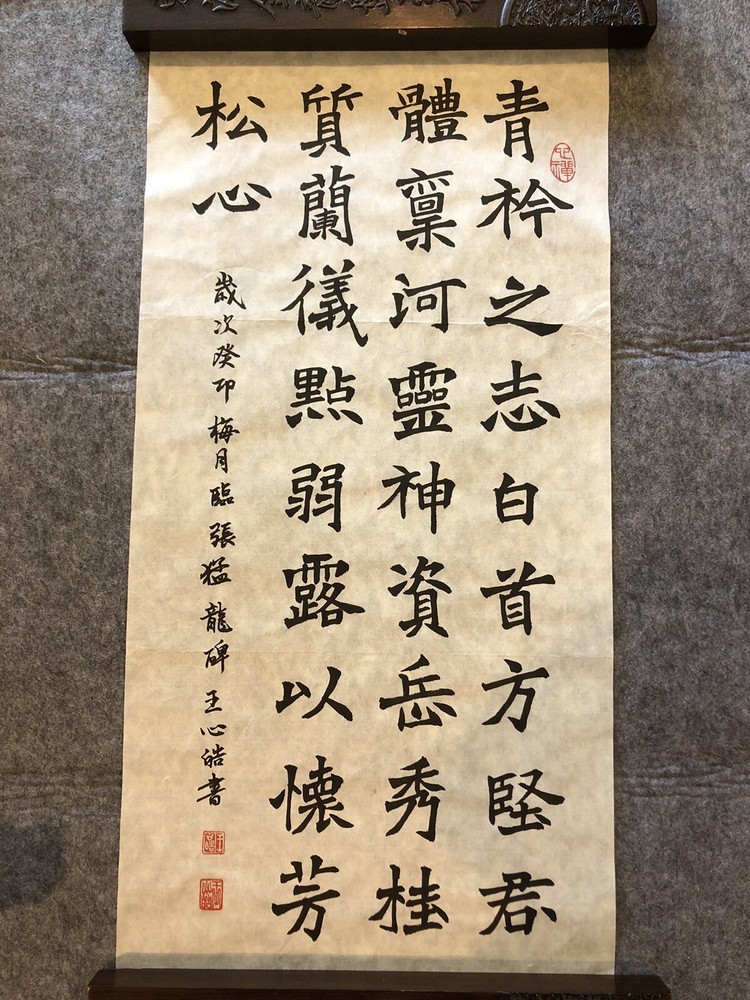 青衿之志白首方堅君
體稟河靈神資岳秀桂
質蘭儀點弱露以懷芳
松心
歲次癸卯梅月臨張猛龍碑王心皓書